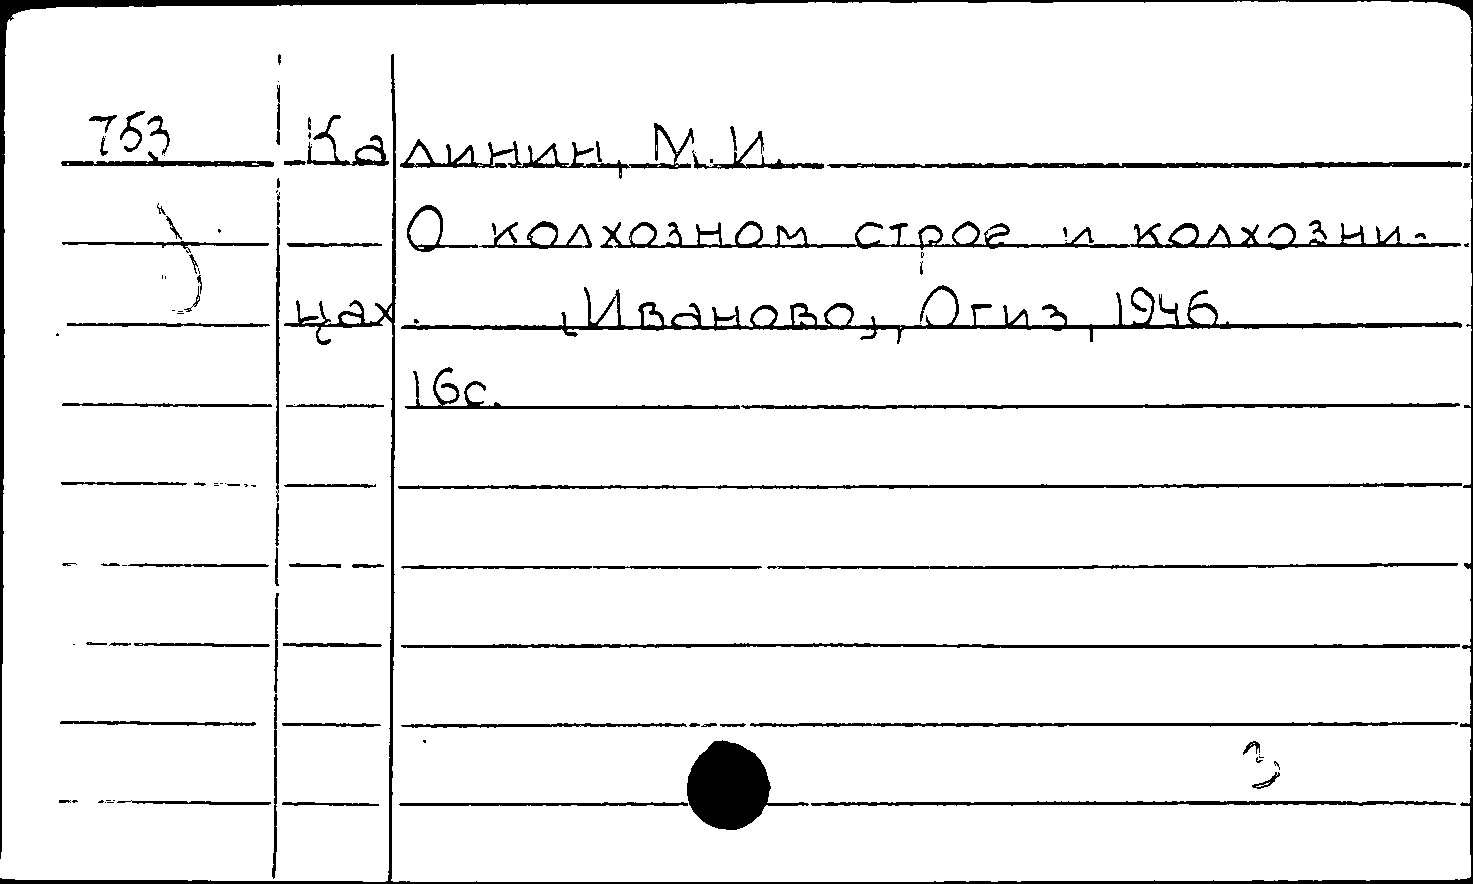 753 Калинин, М.И.
О колхозном строе и колхозни-
цах. [Иваново], Огиз, 1946.
16с.
3